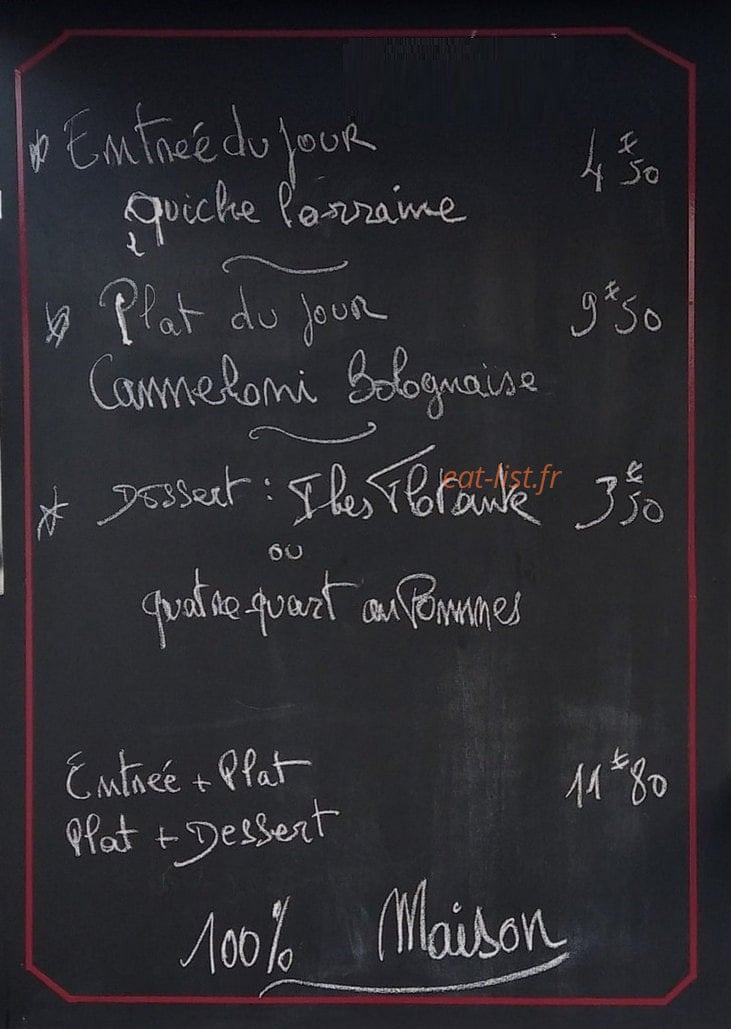 Entrée du jour 4€50
quiche lorraine
Plat du jour 9€50
Canneloni Bolognaise
Dessert : Iles Flotante 3€50
eat-list.fr
ou
quatre-quart au Pommes
Entrée + Plat 11€80
Plat + Dessert
100% Maison